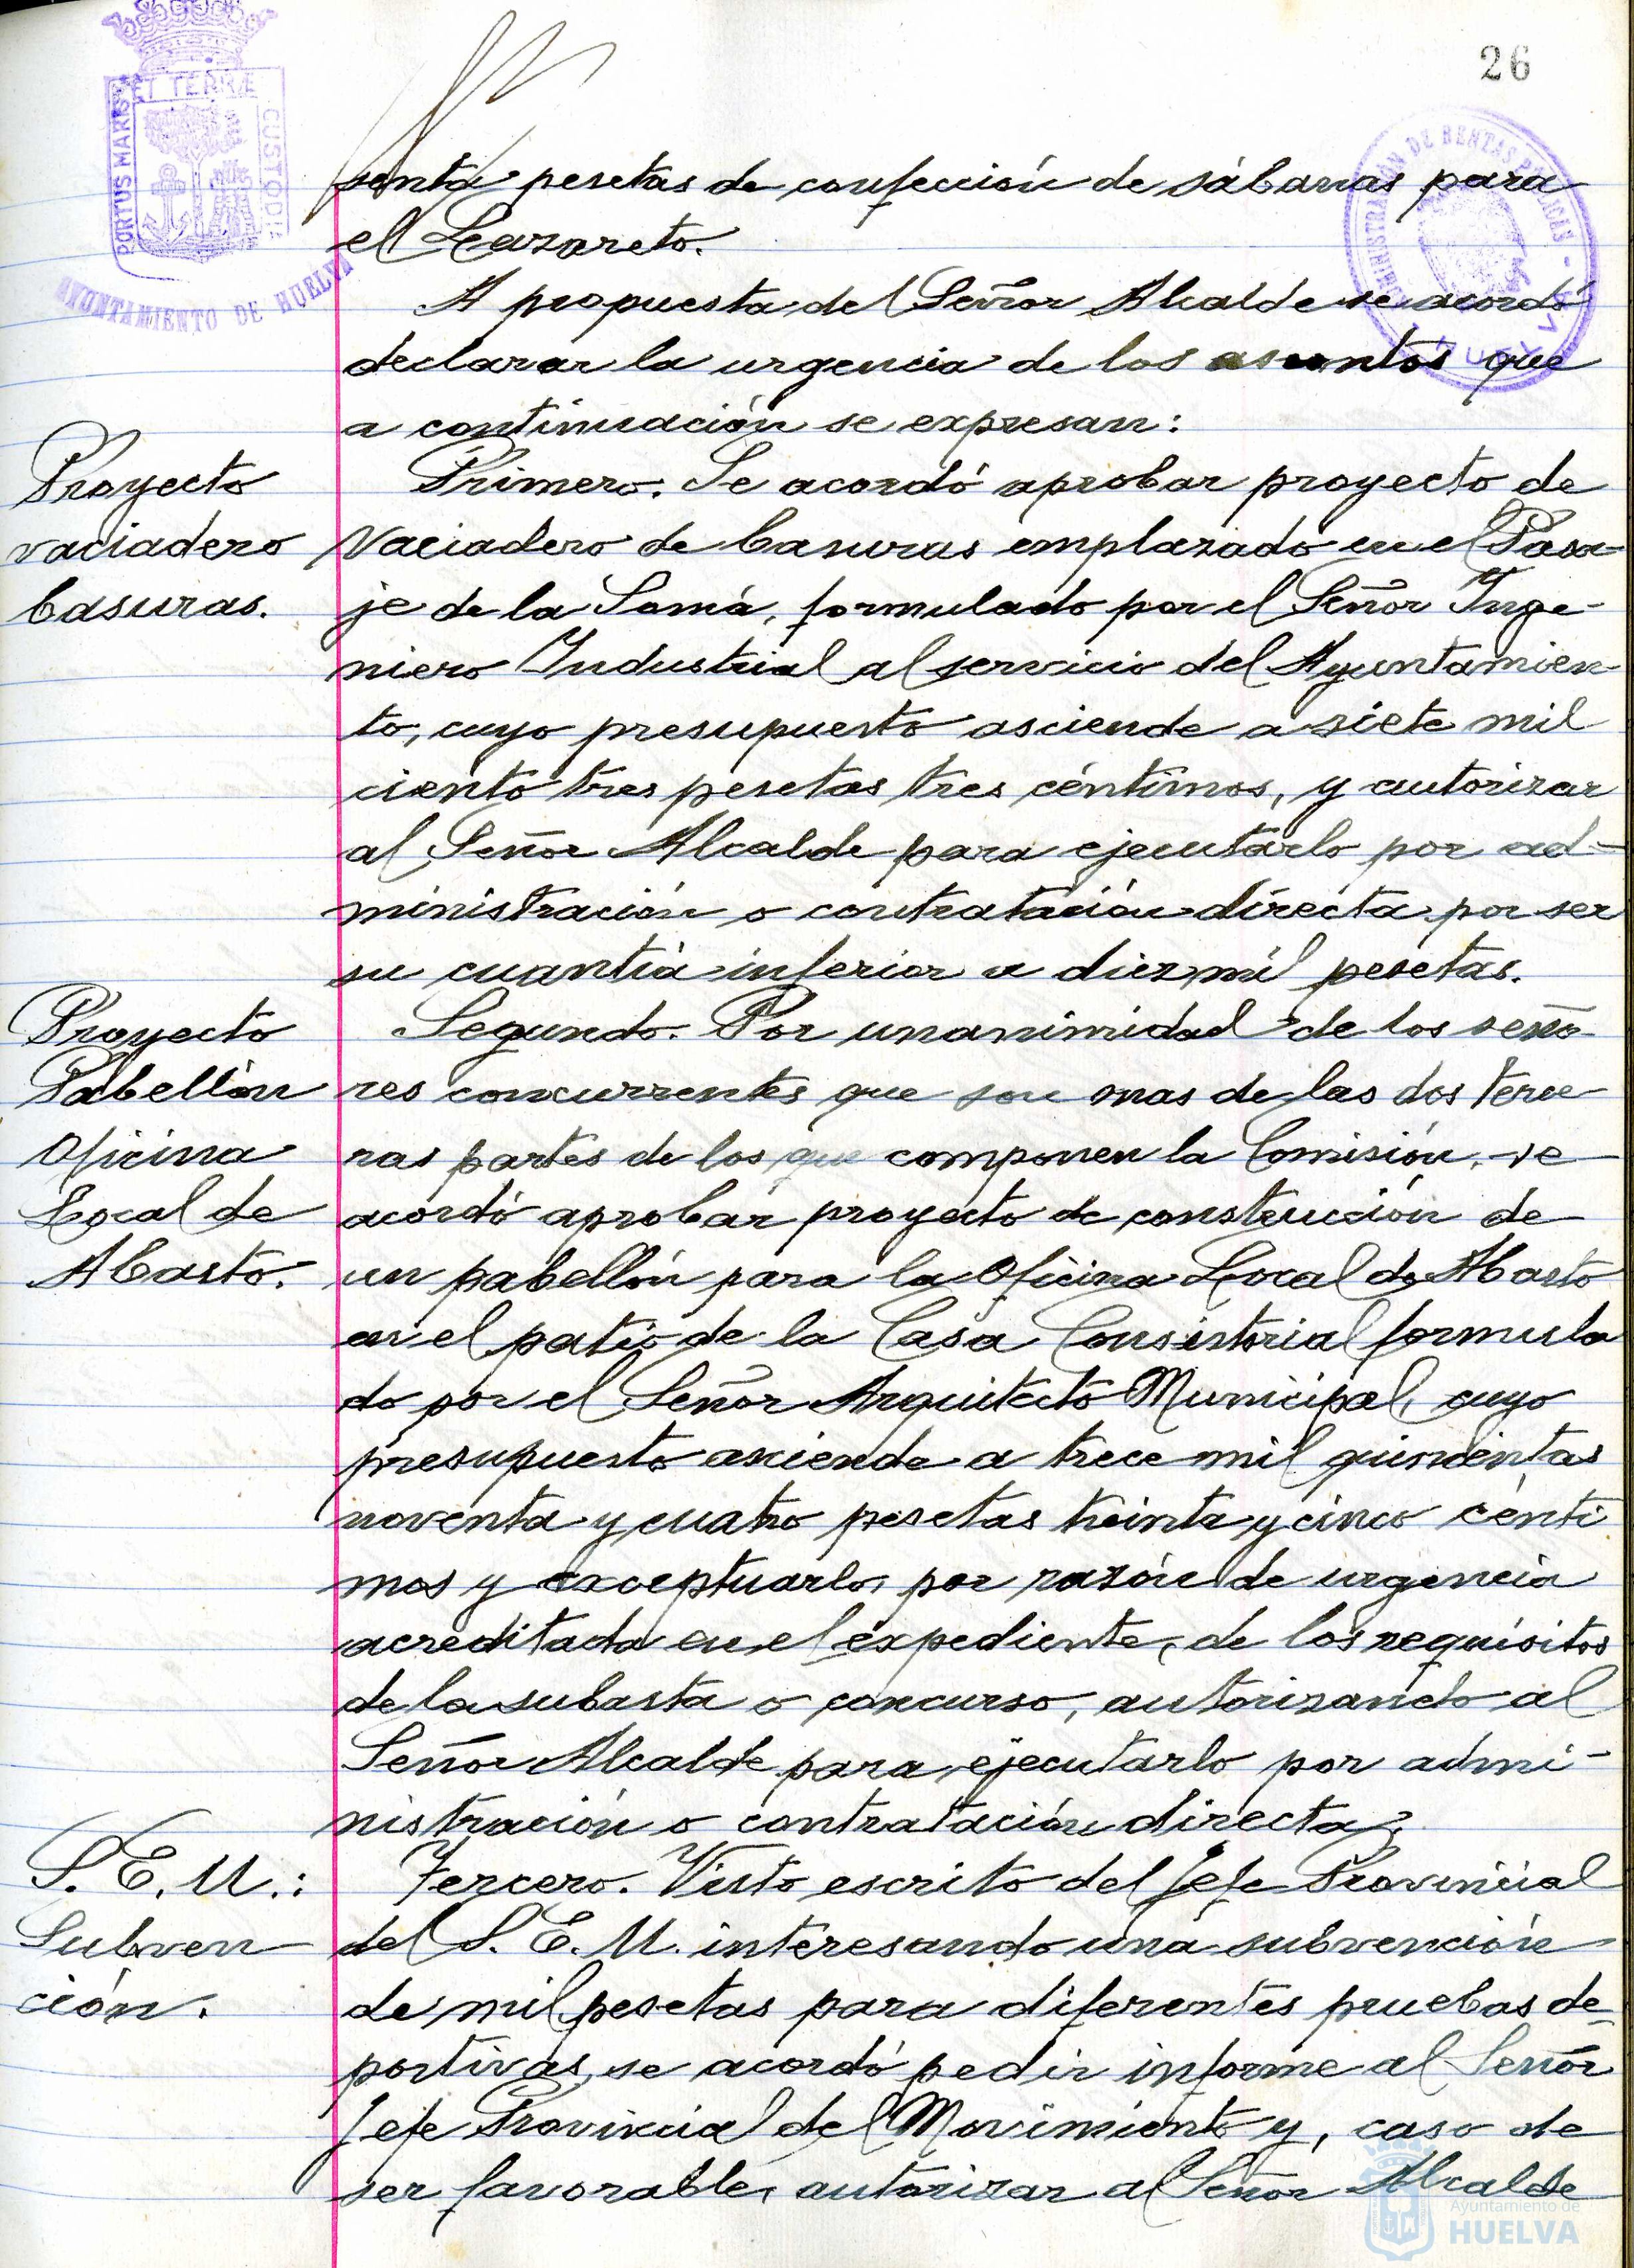 26
PORTUS MARIS
ET TERRÆ
CUSTODIA
AYUNTAMIENTO DE HUELVA
ADMINISTRACIÓN DE RENTAS PÚBLICAS - HUELVA
senta pesetas de confección de sábanas para
el Lazareto.
A propuesta del Señor Alcalde se acordó
declarar la urgencia de los asuntos que
a continuación se expresan:
Proyecto
vaciadero
basuras.
Primero. Se acordó aprobar proyecto de
Vaciadero de basuras emplazado en el Pasa-
je de la Somá, formulado por el Señor Inge-
niero Industrial al servicio del Ayuntamien-
to, cuyo presupuesto asciende a siete mil
ciento tres pesetas tres céntimos, y autorizar
al Señor Alcalde para ejecutarlo por ad-
ministración o contratación directa por ser
su cuantía inferior a diez mil pesetas.
Proyecto
Pabellón
Oficina
Local de
Abasto.
Segundo. Por unanimidad de los seño
res concurrentes que son mas de las dos terce
ras partes de los que componen la Comisión, se
acordó aprobar proyecto de construcción de
un pabellón para la Oficina Local de Abasto
en el patio de la Casa Consistorial formula
do por el Señor Arquitecto Municipal, cuyo
presupuesto asciende a trece mil quinientas
noventa y cuatro pesetas treinta y cinco cénti
mos y exceptuarlo, por razón de urgencia
acreditada en el expediente, de los requisitos
de la subasta o concurso, autorizando al
Señor Alcalde para ejecutarlo por admi-
nistración o contratación directa.
S. E. U.:
Subven
ción.
Tercero. Visto escrito del Jefe Provincial
del S. E. U. interesando una subvención
de mil pesetas para diferentes pruebas de-
portivas, se acordó pedir informe al Señor
Jefe Provincial del Movimiento y, caso de
ser favorable, autorizar al Señor Alcalde
Ayuntamiento de
HUELVA